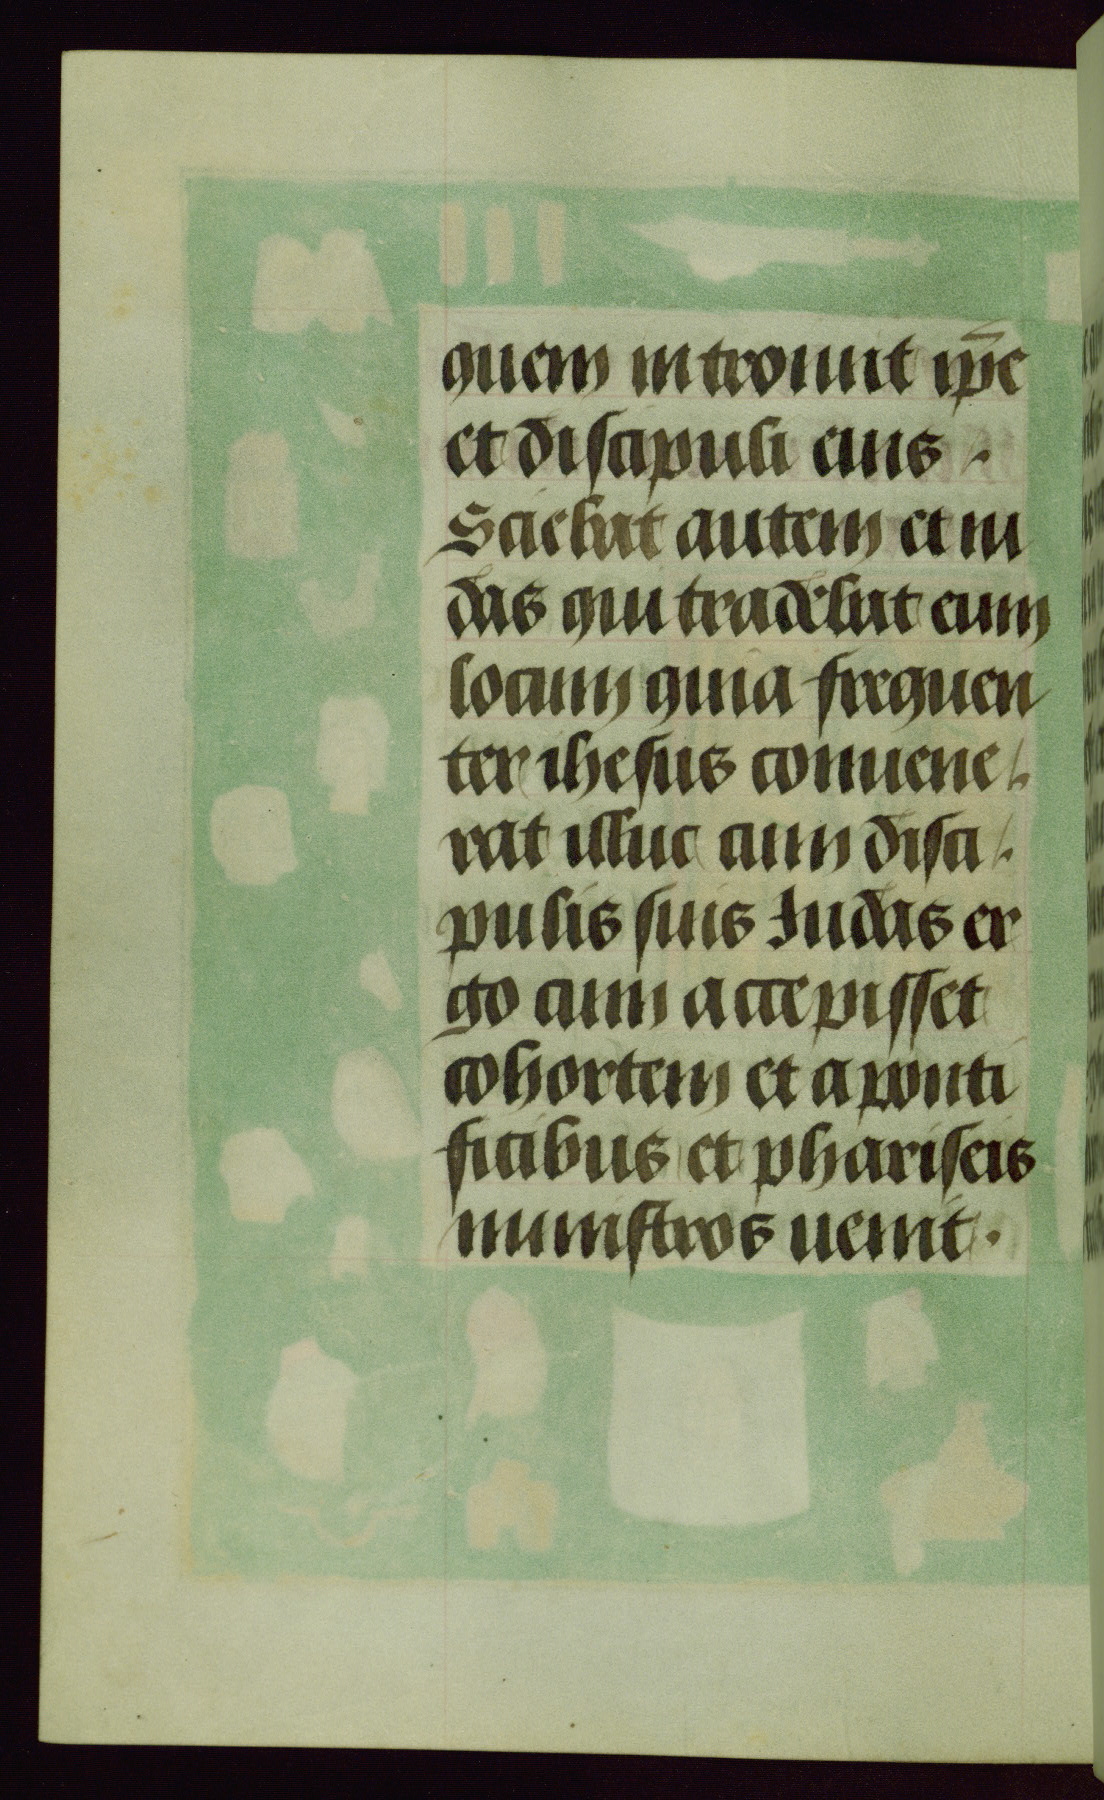 quem introiuit ip̄e
et discipuli eius .
Sciebat autem et iu
das qui tradebat eum
locum quia frequen
ter ihesus conuene/.
rat illuc cum disci/.
pulis suis Iudas er
go cum accepisset
cohortem et a ponti
ficibus et phariseis
ministros uenit .